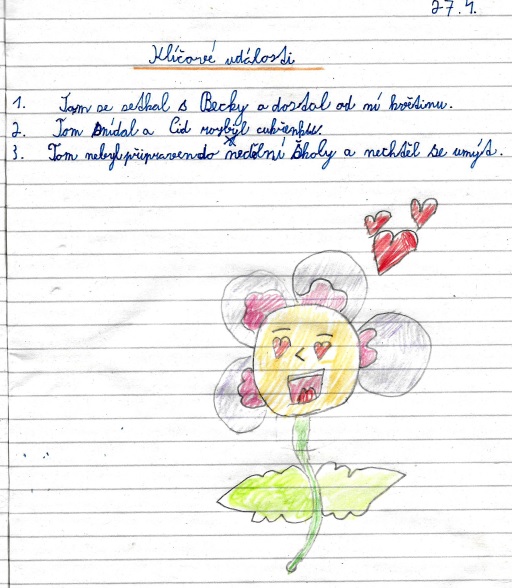 27.4.
Klíčové události
1. Tom se setkal s Becky a dostal od ní květinu.
2. Tom snídal a Cid rozbyl cukřenku.
3. Tom nebyl připraven do nedělní školy a nechtěl se umýt.